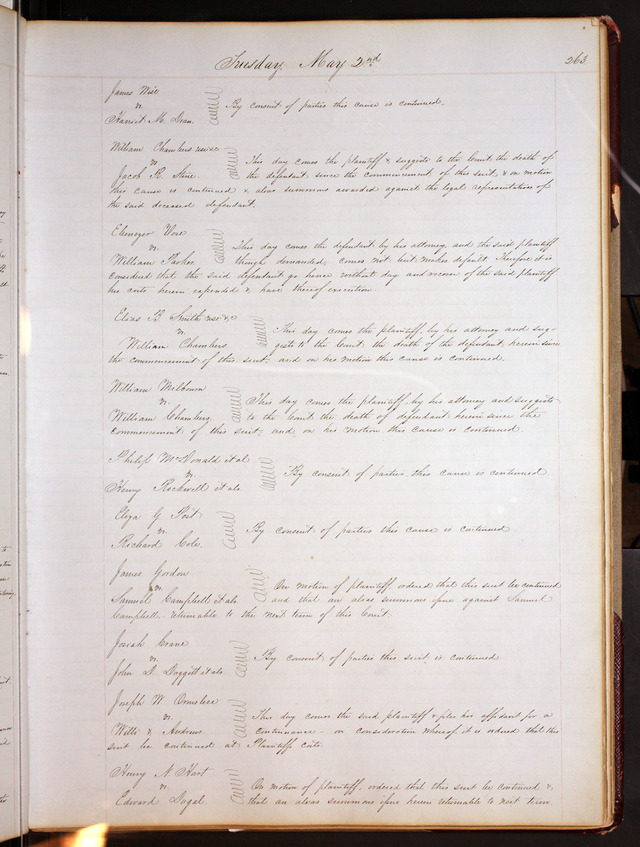 Tuesday, May 2nd
263
James
vs.
M. Dean.
By consent of parties this cause is continued.
William Chambers use &c
vs
Jacob R. Stine.
This day comes the plaintiff & suggests to the Court the death of
the defendant since the commencement of this suit, & on motion
this cause is continued & alias summons awarded against the legal representatives of
the said deceased defendant.
Ebenezer
vs.
William Parker
This day comes the defendant by his attorney, and the said plaintiff
though demanded, comes not but makes default. Therefore it is
considered that the said defendant go hence without day and recover of the said plaintiff
his costs herein expended & have thereof execution.
B Smith use &c
vs
William Chambers
This day comes the plaintiff, by his attorney and sug-
gests to the Court the death of the defendant, herein since
the commencement of this suit; and on his motion this cause is continued.
William Melbourn
vs.
William Chambers
This day comes the plaintiff, by his attorney and suggests
to the Court the death of defendant herein since the
commencement of this suit; and on his motion this cause is continued.
Philip McDonald et al
vs
Henry Rockwell et als
By consent of parties this cause is continued
Eliza G. Post
vs.
Richard Cole.
By consent of parties this cause is continued
James Gordon
vs.
Samuel Campbell et als
On motion of plaintiff, ordered that this suit be continued
and that an alias summons issue against Samuel
Campbell, returnable to the next term of this Court.
Josiah Crane
vs.
John D. Daggitt et als.
By consent of parties this suit is continued
Joseph W
vs
Willis & Andrews
This day comes the said plaintiff & files his affidavit for a
continuance - on consideration whereof it is ordered that this
suit be continued at Plaintiffs costs.
Henry N. Hart
vs.
Edward Dogal.
On motion of plaintiff, ordered that this suit be continued &
that an alias summons issue herein returnable to next term.